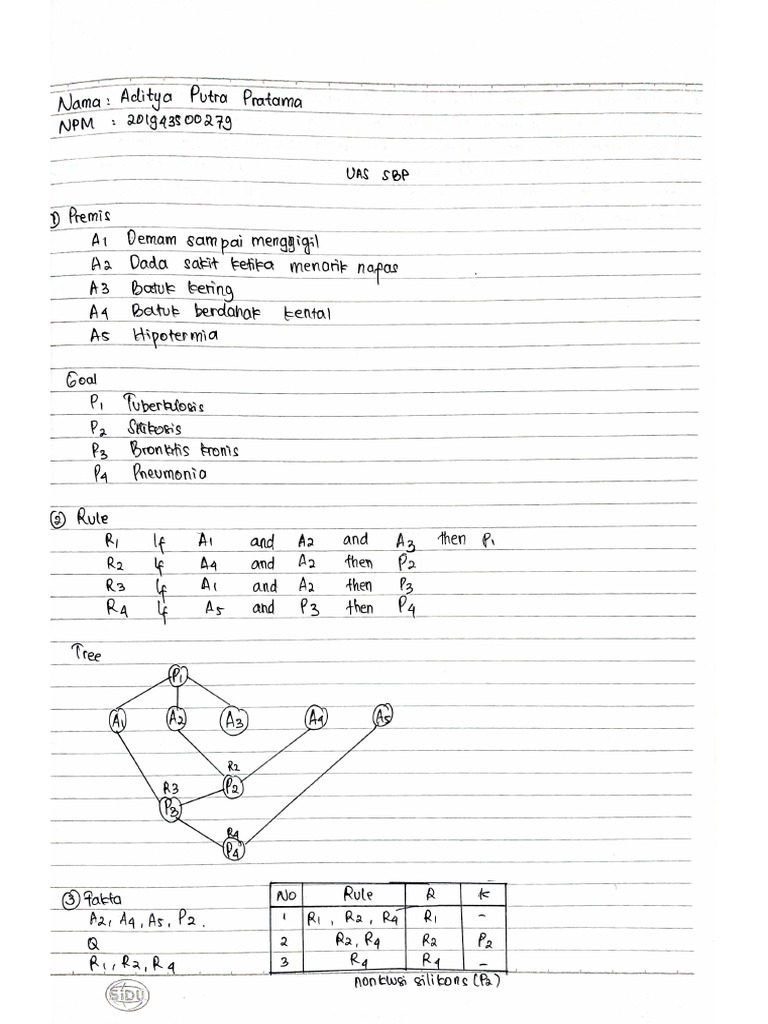 Nama : Aditya Putra Pratama
NPM : 201943500279
UAS SBP
1) Premis
A1 Demam sampai menggigil
A2 Dada sakit ketika menarik napas
A3 Batuk kering
A4 Batuk berdahak kental
A5 Hipotermia
Goal
P1 Tuberkulosis
P2 Silikosis
P3 Bronkitis kronis
P4 Pneumonia
2 Rule
R1 If A1 and A2 and A3 then P1
R2 If A4 and A2 then P2
R3 If A1 and A2 then P3
R4 If A5 and P3 then P4
Tree
P1
A1 A2 A3 A4 A5
R2
R3 P2
P3
R4
P4
3 Fakta
A2, A4, A5, P2.
Q
R1, R2, R4
No Rule R K
1 R1, R2, R4 R1 -
2 R2, R4 R2 P2
3 R4 R4 -
nonklusi silikons (P2)
SiDU